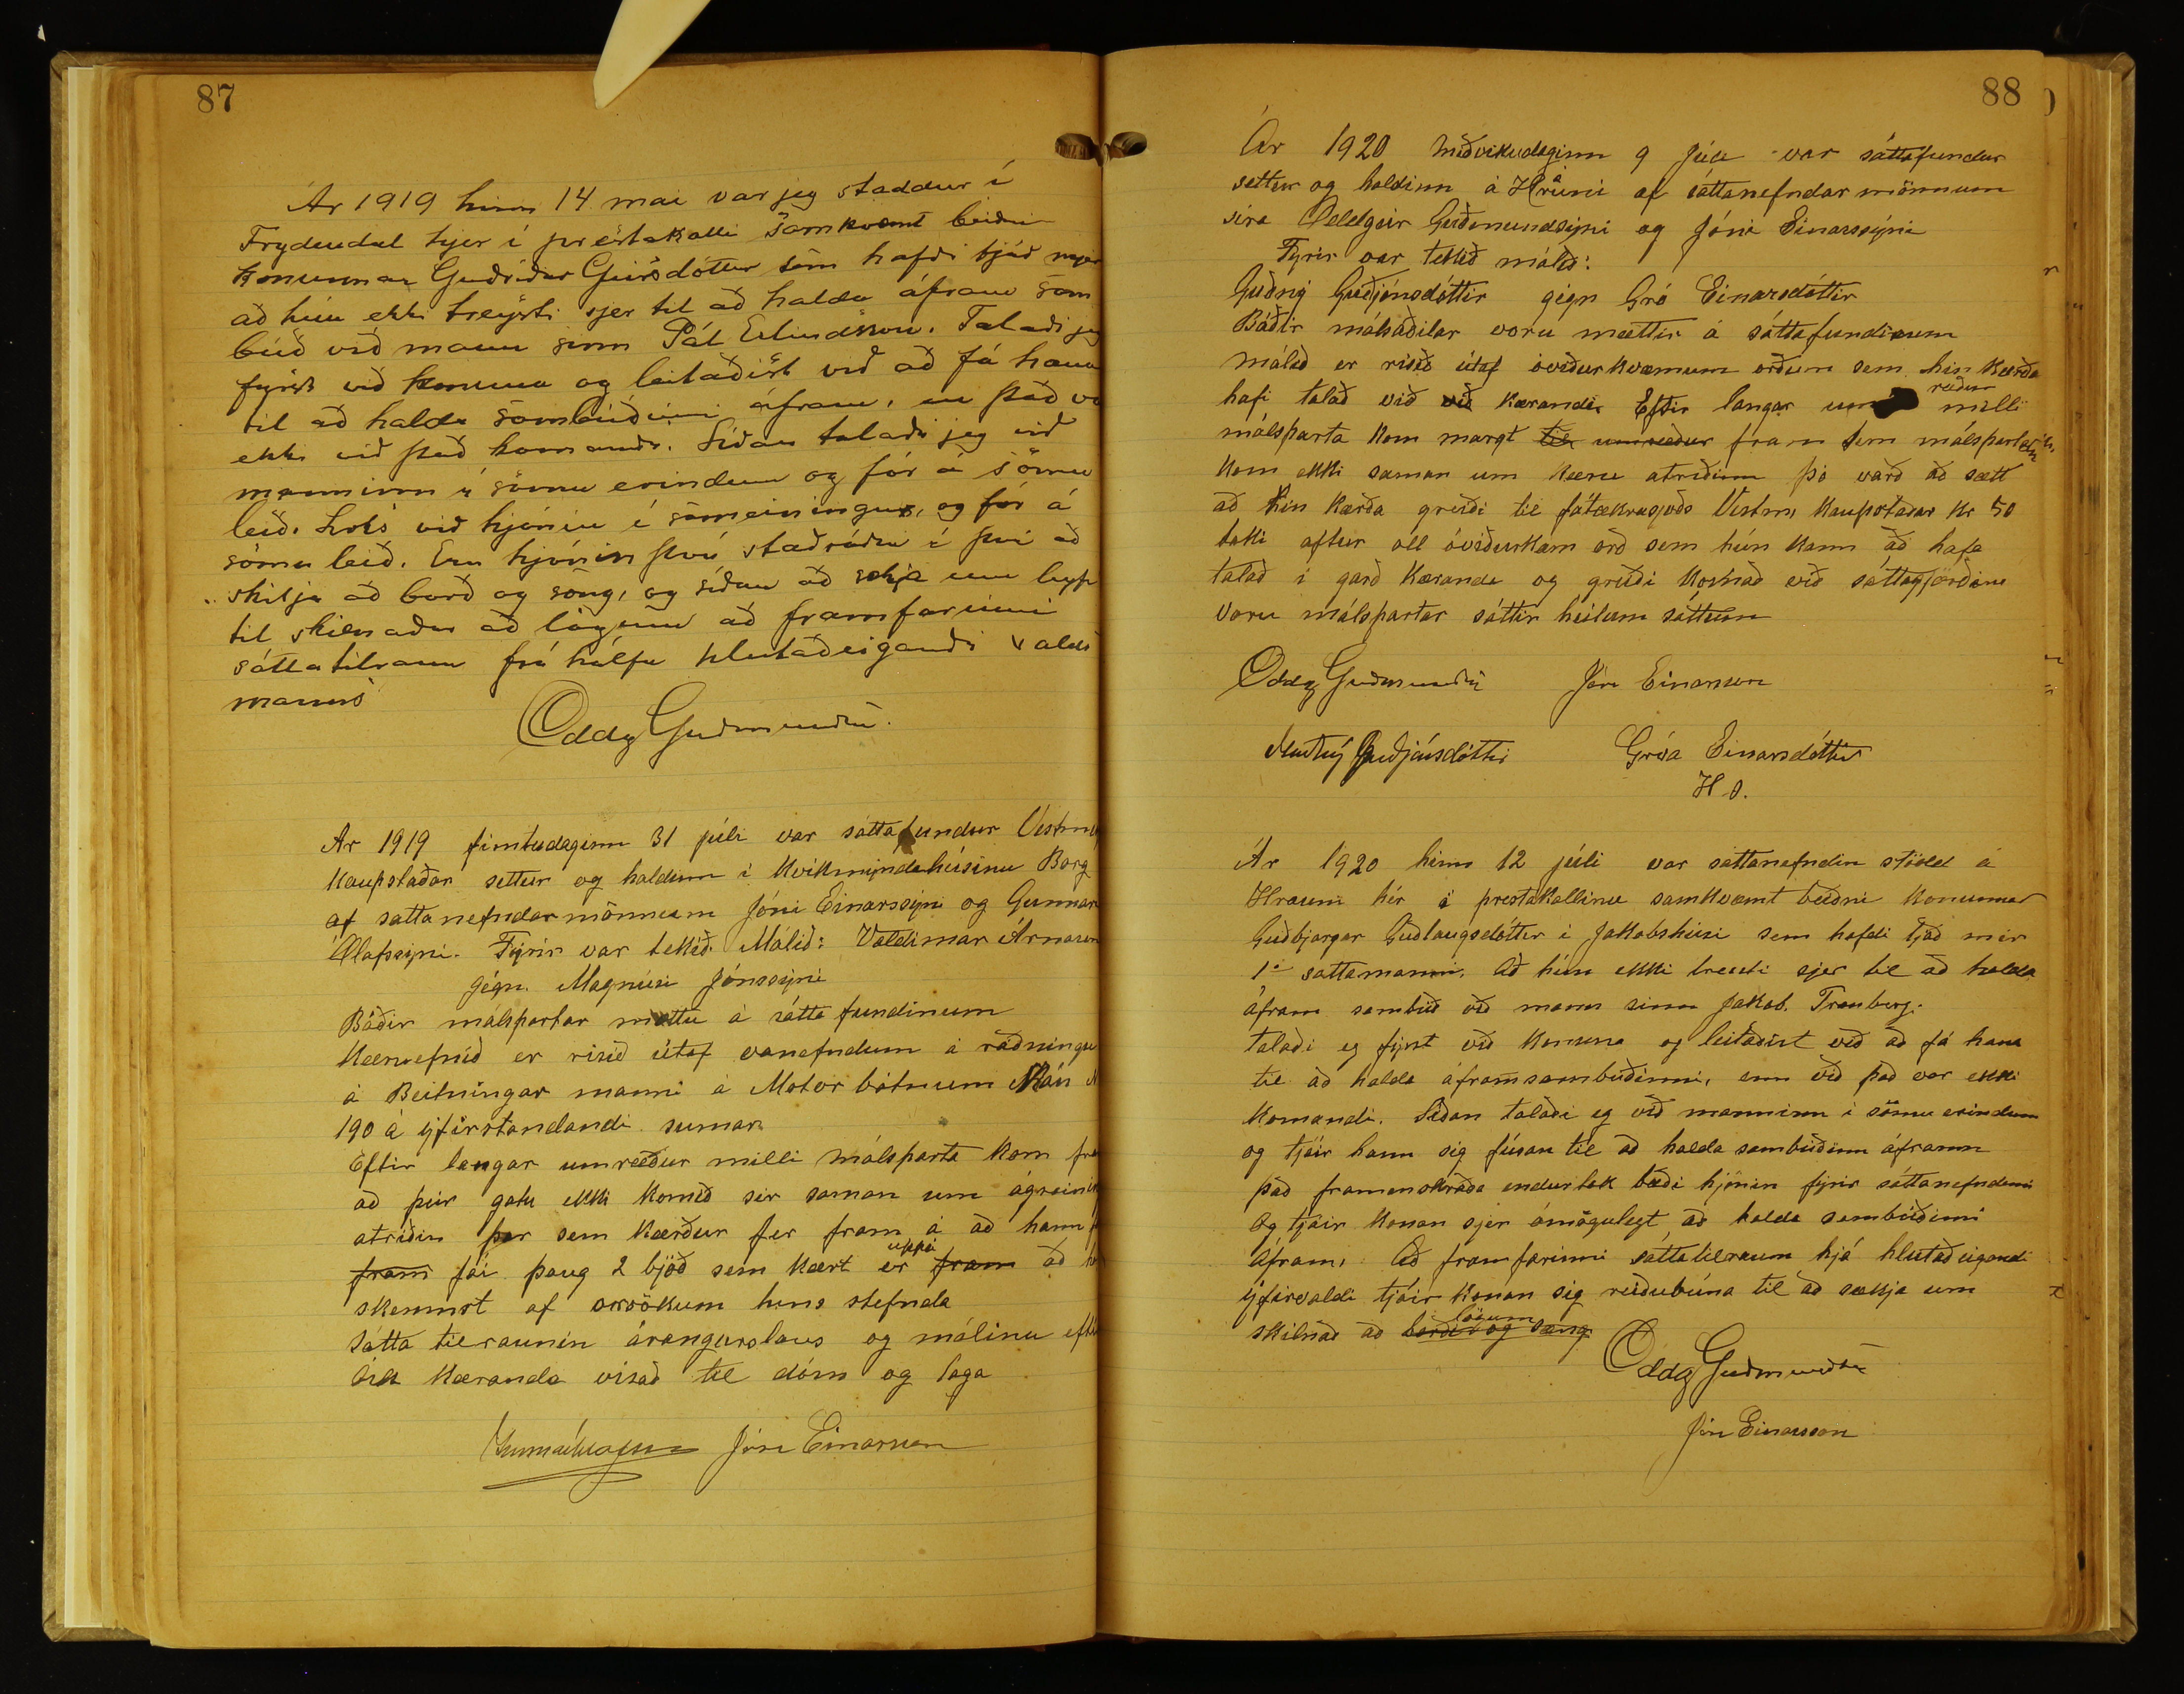 87
Ár 1919 hinn 14 mai var jeg staddur í
Frydendal hjer í prestakalli samkvæmt beiðni
konunnar Guðríðar Geirsdóttur sem hafði tjáð mjer
að hún ekki treysti sjer til að halda áfram sam
búð við mann sinn Pál Erlendsson. Talaði jeg
fyrst við konuna og leitaðist við að fá hana
til að halda sambúðinni áfram, en það va
ekki við það komandi. Síðan talaði jeg við
manninn í sömu erindum og fór á sömu
leið. Loks við hjónin í sameiningu, og fór á
sömu leið. Eru hjónin því staðráðin í því að
skilja að borð og sæng, og síðan að sækja um leyfi
til skilnaðar að lögum að framfarinni
sáttatilraun frá hálfu hlutaðeigandi valds
manns
Oddg Guðmundss.
Ar 1919 fimtudaginn 31 júli var sáttafundur Vestm
Kaupstaðar settur og haldinn í Kvikmyndahúsinu Borg
af sattanefndarmönnum Jóni Einarssyni og Gunnar
Ólafssyni. Fyrir var tekið. Málið: Valdimar Árnason
gégn. Magnúsi Jónssyni
Báðir málspartar mættu á sátta fundinum
Kæruefnið er risið útaf vanefndum á ráðningu
á Beitningar manni á Motor bátnum
190 á yfirstandandi sumar
Eftir langar umræður milli málsparta kom fra
að þeir gatu ekki komið sér saman um ágreinin
atriðin þar sem Kærður fer fram á að hann
fram fái þaug 2 bjöð sem kært er uppá fram að
skemst af orsökum hins stefnda
Sátta tilraunin árangurslaus og málinu efti
ósk Kæranda vísað til dóms og laga
Gunnar Ólafsson Jón Einarsson
88
Ár 1920 miðvikudaginn 9 Júli var sáttafundur
settur og haldinn á Hrauni af sáttanefndar mönnum
síra Oddgeir Guðmundsyni og Jóni Einarssyni
Fyrir var tekið málið:
Guðný Guðjónsdóttir gégn Gró Einarsdóttir
Báðir málsaðilar voru mættir á sáttafundinum
Málið er risið útaf óviðurkvæmum orðum sem hin Kærða
hafi talað við við Kæranda Eftir langar um ræður milli
málsparta kom margt til umræður fram sem málspartarnir
kom ekki saman um kæru atriðinn þó varð að sætt
að hin Kærða greiði til fátækrasjóðs Vestm, Kaupstaðar Kr 50
taki aftur öll óviðurkvæm orð sem hún kann að hafa
talað í garð Kæranda og greiði Kostnað við sáttagjörðina
voru málspartar sáttir heilum sáttum
Oddg Guðmundss Jón Einarsson
Guðný Guðjónsdóttir Gróa Einarsdóttir
H. S.
Ár 1920 hinn 12 júli var sáttanefndin stödd á
Hrauni hér í prestakallinu samkvæmt beiðni Konunnar
Guðbjargar Guðlaugsdóttir í Jakobshúsi sem hafdi tjáð mér
1. sattamanni. Að hún ekki treisti sjer til að halda
áfram sambúð við mann sinn Jakob. Tranberg.
talaði eg fyrst við Konuna og leitaðist við að fá hana
til að halda áfram sambúðinni, enn við það var ekki
komandi. Síðan talaði eg við manninn í sömu erindum
og tjáir hann sig fúsan til að halda sambúðinn áframm
það framanskráða endurtak bæði hjónin fyrir sáttanefndinni
og tjáir konan sjer ómögulegt að halda sambúðinni
áfram, Að framfarinni sáttatilraun hjá hlutaðeigandi
yfirvaldi tjáir konan sig reiðubúna til að sækja um
skilnað að borði og sæng lögum
Oddg Guðmundss
Jón Einarsson